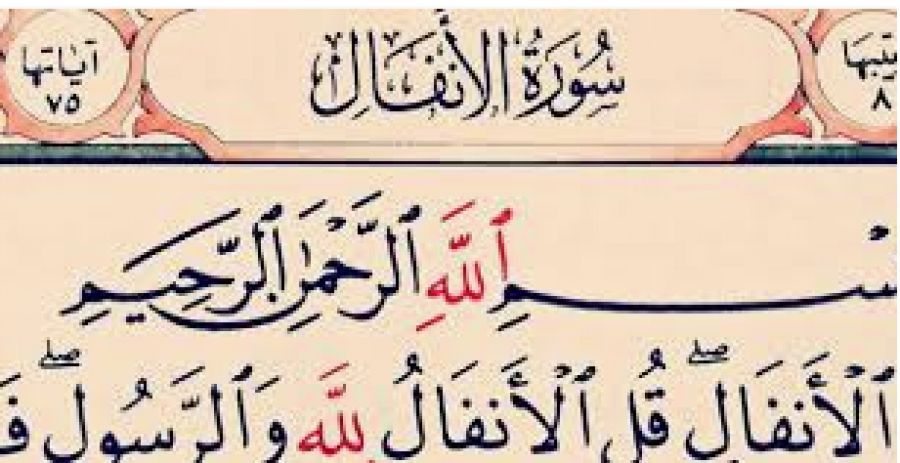 ترتيبها ٨
سُورَةُ الأَنفَال
آياتها ٧٥
بِسْمِ ٱللَّهِ ٱلرَّحْمَٰنِ ٱلرَّحِيمِ
ٱلْأَنفَالِۖ قُلِ ٱلْأَنفَالُ لِلَّهِ وَٱلرَّسُولِۖ